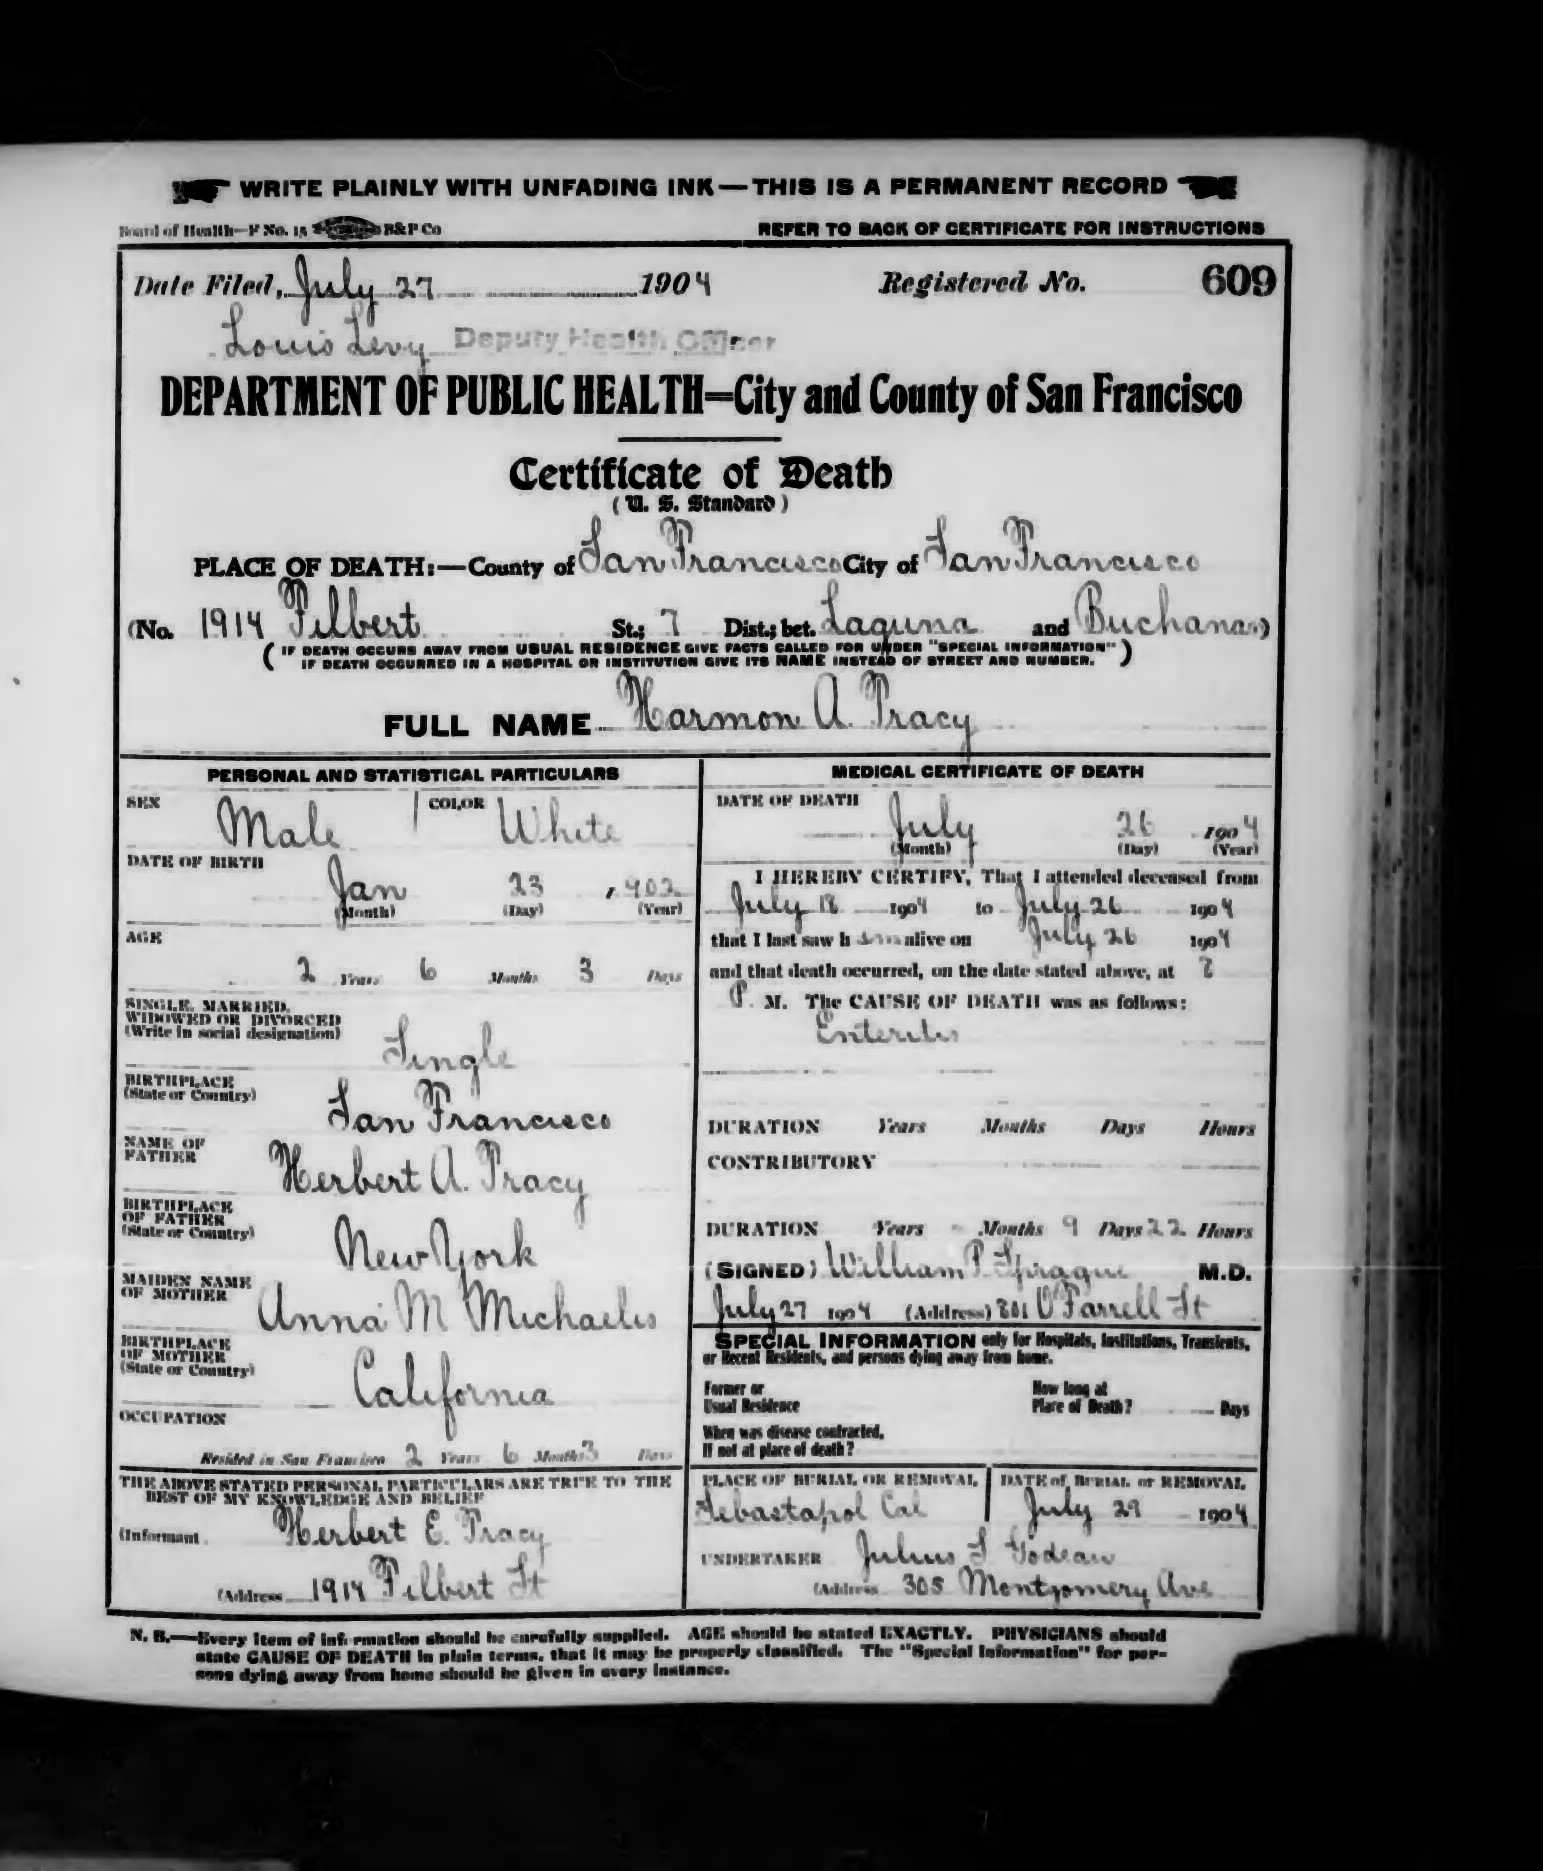 WRITE PLAINLY WITH UNFADING INK—THIS IS A PERMANENT RECORD
Board of Health—F No. 15 B&P Co REFER TO BACK OF CERTIFICATE FOR INSTRUCTIONS
Date Filed, July 27 1904 Registered No. 609
Louis Levy Deputy Health Officer
DEPARTMENT OF PUBLIC HEALTH=City and County of San Francisco
Certificate of Death
(U. S. Standard)
PLACE OF DEATH:—County of San Francisco City of San Francisco
(No. 1914 Filbert St.; 7 Dist.; bet. Laguna and Buchanan)
(IF DEATH OCCURS AWAY FROM USUAL RESIDENCE GIVE FACTS CALLED FOR UNDER "SPECIAL INFORMATION"
IF DEATH OCCURRED IN A HOSPITAL OR INSTITUTION GIVE ITS NAME INSTEAD OF STREET AND NUMBER.)
FULL NAME Harmon A. Tracy
PERSONAL AND STATISTICAL PARTICULARS
SEX Male COLOR White
DATE OF BIRTH
Jan 23 1902
(Month) (Day) (Year)
AGE
2 Years 6 Months 3 Days
SINGLE, MARRIED,
WIDOWED OR DIVORCED
(Write in social designation)
Single
BIRTHPLACE
(State or Country)
San Francisco
NAME OF
FATHER
Herbert A. Tracy
BIRTHPLACE
OF FATHER
(State or Country)
New York
MAIDEN NAME
OF MOTHER
Anna M Michaelis
BIRTHPLACE
OF MOTHER
(State or Country)
California
OCCUPATION
Resided in San Francisco 2 Years 6 Months 3 Days
THE ABOVE STATED PERSONAL PARTICULARS ARE TRUE TO THE
BEST OF MY KNOWLEDGE AND BELIEF
(Informant Herbert E. Tracy
(Address 1914 Filbert St
MEDICAL CERTIFICATE OF DEATH
DATE OF DEATH
July 26 1904
(Month) (Day) (Year)
I HEREBY CERTIFY, That I attended deceased from
July 18 1904 to July 26 1904
that I last saw h im alive on July 26 1904
and that death occurred, on the date stated above, at
P. M. The CAUSE OF DEATH was as follows:
Enteritis
DURATION Years Months Days Hours
CONTRIBUTORY
DURATION Years - Months 9 Days 22 Hours
(SIGNED) William P. Sprague M.D.
July 27 1904 (Address) 801 O'Farrell St
SPECIAL INFORMATION only for Hospitals, Institutions, Transients,
or Recent Residents, and persons dying away from home.
Former or
Usual Residence
How long at
Place of Death? Days
When was disease contracted,
If not at place of death?
PLACE OF BURIAL OR REMOVAL DATE of BURIAL or REMOVAL
Sebastapol Cal July 29 1904
UNDERTAKER Julius S Godeau
(Address 305 Montgomery Ave
N. B.—Every item of information should be carefully supplied. AGE should be stated EXACTLY. PHYSICIANS should
state CAUSE OF DEATH in plain terms, that it may be properly classified. The "Special Information" for per-
sons dying away from home should be given in every instance.